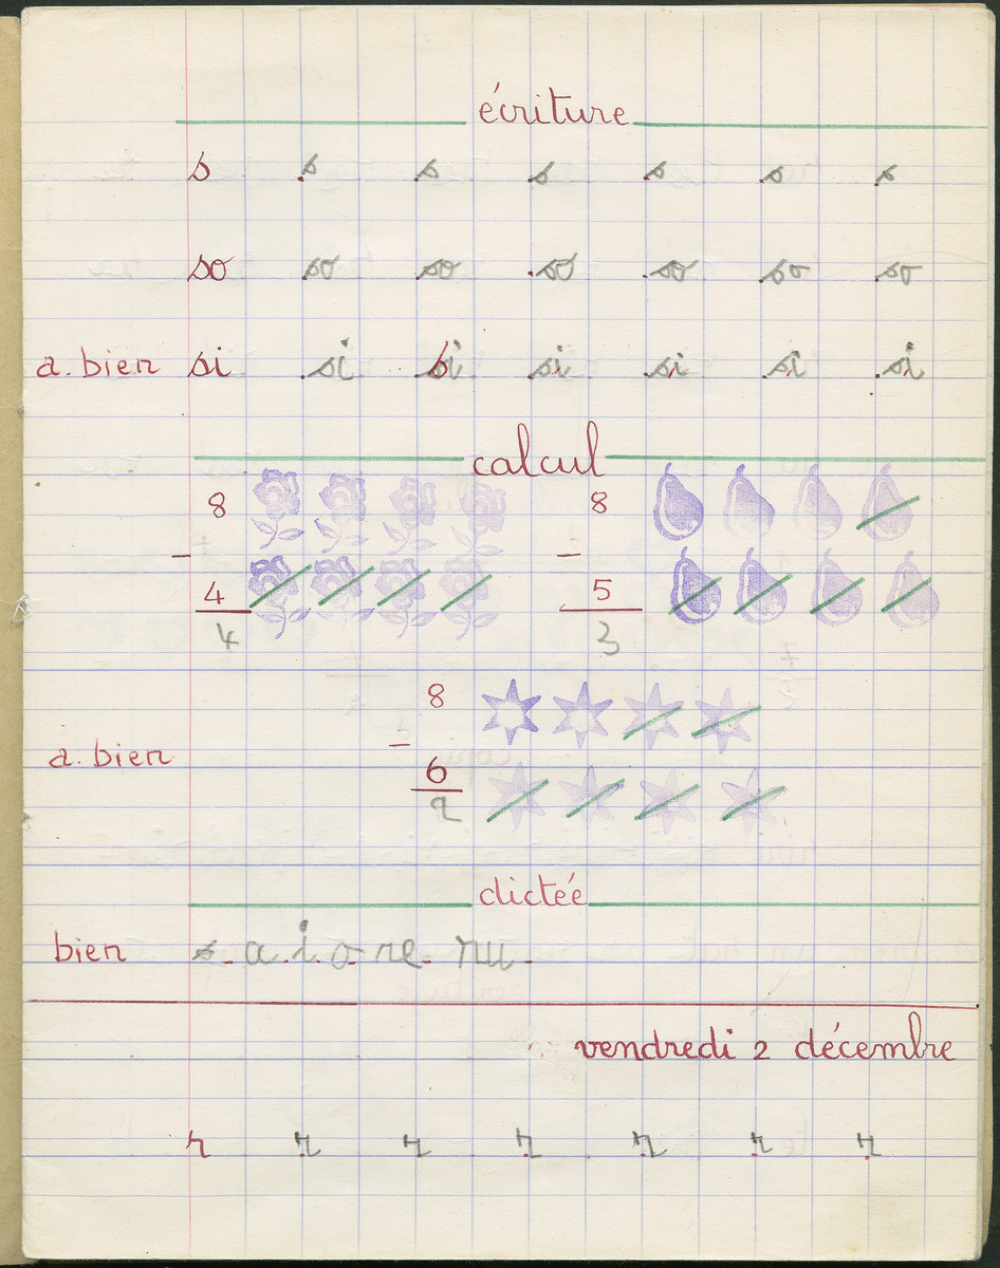 écriture
s s s s s s s
so so so so so so so
a. bien si si si si si si si
calcul
8 8
- -
4 5
4 3
8
a. bien -
6
2
dictée
bien s a i o re ru
vendredi 2 décembre
r r r r r r r